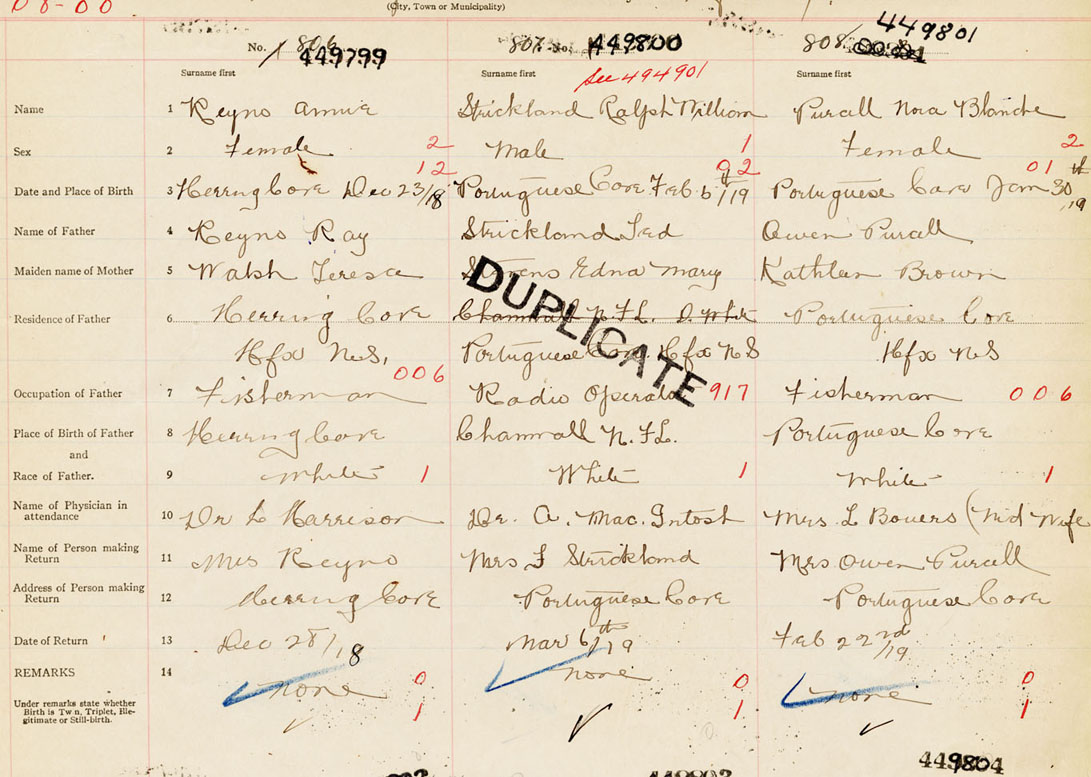 08-00
(City, Town or Municipality)
No. 806 449799 807 No. 449800 808 449801
Surname first Surname first Surname first
See 494901
Name 1 Reyno Annie Strickland Ralph William Purcall Nora Blanche
Sex 2 Female 2 Male 1 Female 2
12 92 01
Date and Place of Birth 3 Herring Cove Dec 23/18 Portuguese Cove Feb 6th/19 Portuguese Cove Jan 30th /19
Name of Father 4 Reyno Ray Strickland Owen Purcall
Maiden name of Mother 5 Walsh Teresa Edna Mary Kathleen Brown
Residence of Father 6 Herring Cove N.F.L. Portuguese Cove
Hfx N.S. Portuguese Cove Hfx N S Hfx N S
DUPLICATE
006
Occupation of Father 7 Fisherman Radio Operator 917 Fisherman 006
Place of Birth of Father 8 Herring Cove N.F.L. Portuguese Cove
and
Race of Father. 9 White 1 White 1 White 1
Name of Physician in
attendance 10 Dr L Harrison Dr. A. MacIntosh Mrs. L Bowers (Mid Wife
Name of Person making
Return 11 Mrs Reyno Mrs Strickland Mrs Owen Purcall
Address of Person making
Return 12 Herring Cove Portuguese Cove Portuguese Cove
Date of Return 13 Dec 28/18 Mar 6th/19 Feb 22nd/19
REMARKS 14 none 0 none 0 none 0
Under remarks state whether
Birth is Twin, Triplet, Ille-
gitimate or Still-birth. 1 1 1
449804